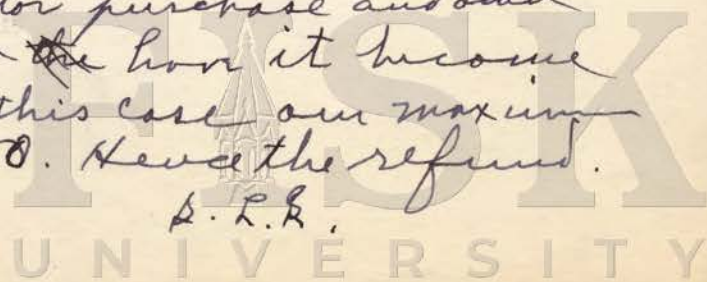 or purchase and
the how it become
this case our maximum
0. Hence the refund.
FISK
UNIVERSITY